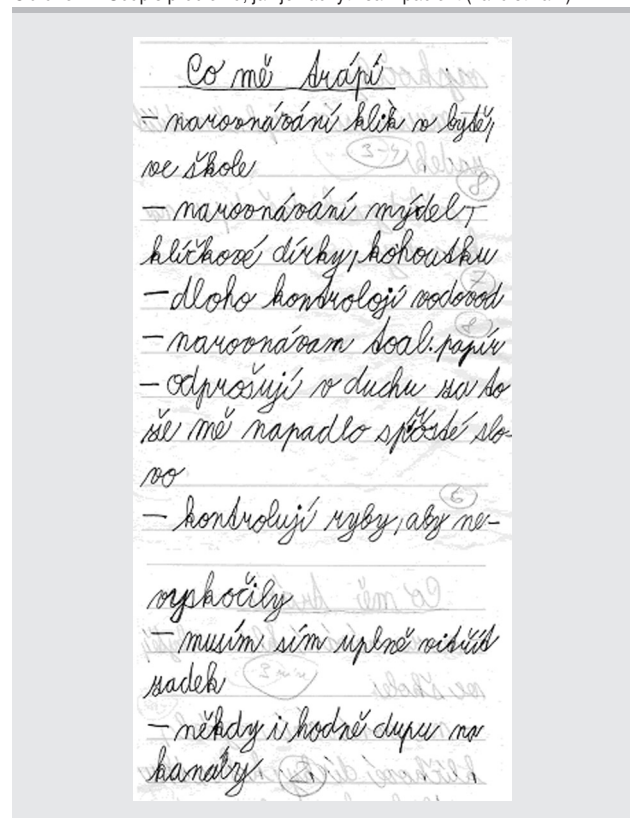 Co mě trápí
– narovnávání klik v bytě,
ve škole
3-4
8
– narovnávání mýdel,
klíčkové dírky, kohoutku
7
– dloho kontroloji vodovod
8
– narovnávam toal. papír
– odprošují v duchu za to
že mě napadlo sprosté slo-
vo
6
– kontrolují ryby, aby ne-
vyskočily
– musím sím uplně vitřít
zadek
– někdy i hodně dupu na
kanály